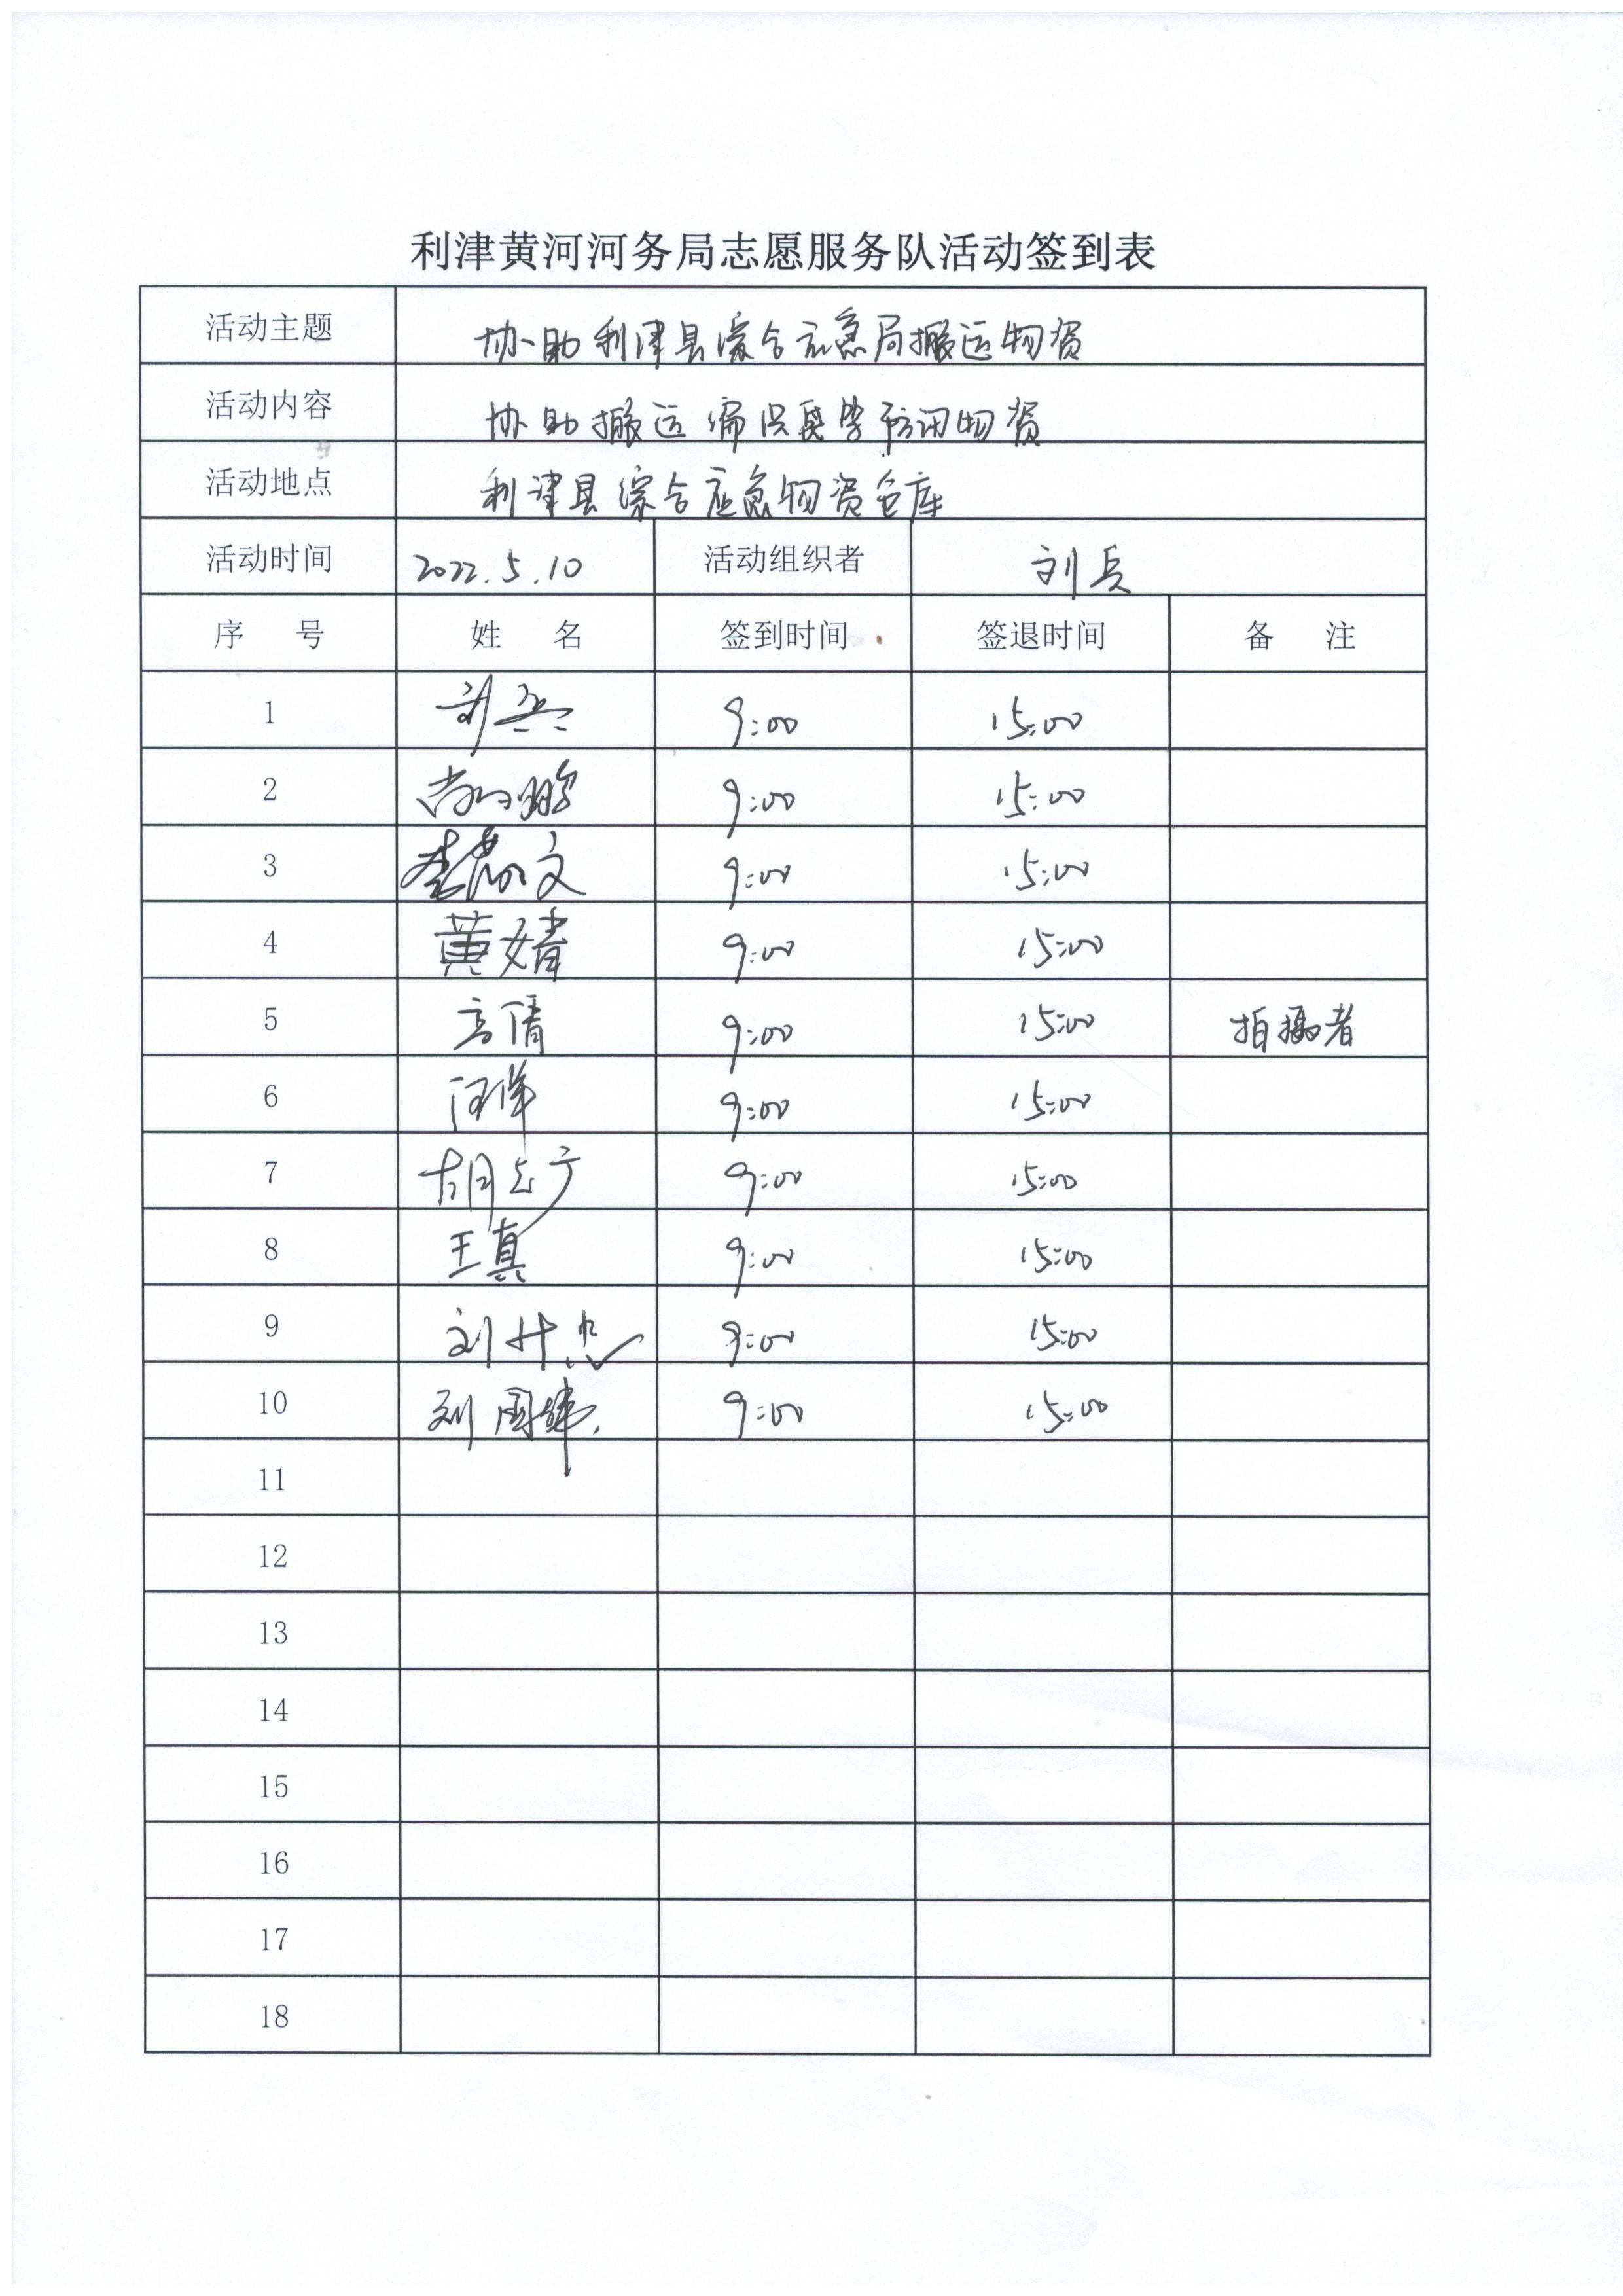 利津黄河河务局志愿服务队活动签到表
活动主题 协助利津县综合应急局搬运物资
活动内容 协助搬运 防汛物资
活动地点 利津县综合应急物资仓库
活动时间 2022.5.10 活动组织者 刘兵
序 号 姓 名 签到时间 签退时间 备 注
1 刘兵 9:00 15:00
2 尚 鹏 9:00 15:00
3 李 文 9:00 15:00
4 黄婧 9:00 15:00
5 高倩 9:00 15:00 拍摄者
6 9:00 15:00
7 胡 9:00 15:00
8 王真 9:00 15:00
9 刘 9:00 15:00
10 刘国 9:00 15:00
11
12
13
14
15
16
17
18